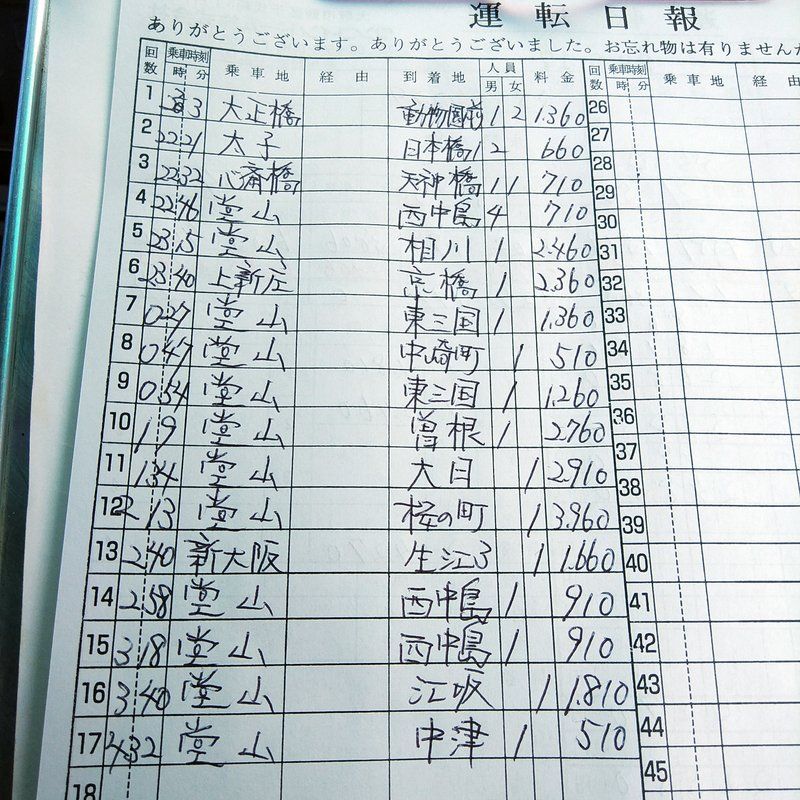 運転日報
ありがとうございます。ありがとうございました。お忘れ物は有りませんか
回数 乗車時刻 時 分 乗車地 経由 到着地 人員 男 女 料金 回数 乗車時刻 時 分 乗車地 経由
1 大正橋 動物園前 1 2 1.360 26
2 22 21 大子 日本橋 1 2 660 27
3 22 32 心斎橋 天神橋 1 1 710 28
4 22 46 堂山 西中島 4 710 29
5 23 15 堂山 相川 1 2.460 30
6 23 40 上新庄 京橋 1 2.360 31
7 0 27 堂山 東三国 1 1.360 32
8 0 47 堂山 中崎町 1 510 33
9 0 54 堂山 東三国 1 1.260 34
10 1 9 堂山 曽根 1 2760 35
11 1 34 堂山 大日 1 2.910 36
12 2 13 堂山 桜の町 1 3.960 37
13 2 40 新大阪 生江3 1 1.660 38
14 2 58 堂山 西中島 1 910 39
15 3 18 堂山 西中島 1 910 40
16 3 40 堂山 江坂 1 1.810 41
17 4 32 堂山 中津 1 510 42
18 43
44
45